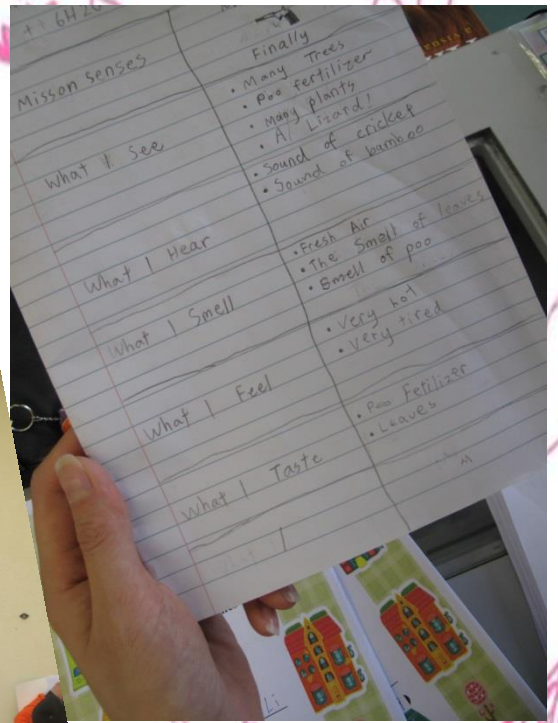 ++ 6H2O
Misson senses
Finally
What I See
• Many Trees
• Poo fertilizer
• Many plants
• A Lizard!
What I Hear
• Sound of cricket
• Sound of bamboo
What I Smell
• Fresh Air
• The Smell of leaves
• Smell of poo
What I Feel
• Very hot
• Very tired
What I Taste
• Poo Fetilizer
• Leaves
Li